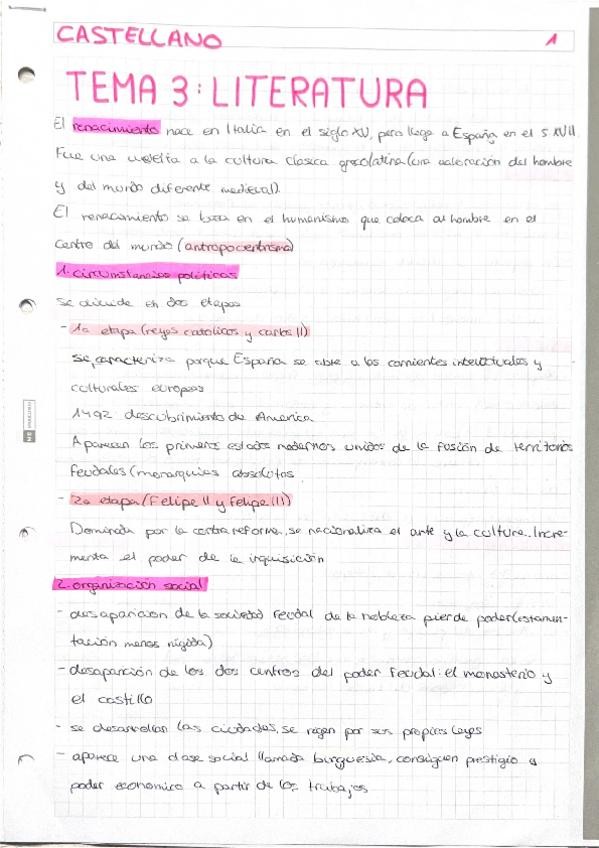 CASTELLANO 1
TEMA 3: LITERATURA
El renacimiento nace en Italia en el siglo XV, pero llega a España en el s XVII.
Fue una vuelta a la cultura clasica grecolatina (una valoración del hombre
y del mundo diferente medieval).
El renacimiento se basa en el humanismo que coloca al hombre en el
centro del mundo (antropocentrismo)
1. circunstancias politicas
se divide en dos etapas
- 1a etapa (reyes catolicos y carlos II)
se caracteriza porque España se abre a las corrientes intelectuales y
culturales europeas
1492 descubrimiento de America
Aparecen los primeros estados modernos unidos de la fusión de territorios
feudales (monarquias absolutas
- 2a etapa (Felipe II y Felipe III)
Dominada por la contrareforma, se nacionaliza el arte y la cultura. Incre-
menta el poder de la inquisición
2. organización social
- desaparicion de la sociedad feudal de la nobleza pierde poder (estamen-
tación menos rígida)
- desaparición de los dos centros del poder feudal: el monasterio y
el castillo
- se desarrollan las ciudades, se rigen por sus propias leyes
- aparece una clase social llamada burguesia, consiguen prestigio y
poder economico a partir de los trabajos